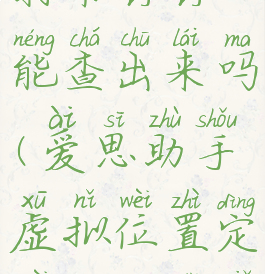 néng chá chū lái ma
能查出来吗
ài sī zhù shǒu
(爱思助手
xū nǐ wèi zhì dìng
虚拟位置定